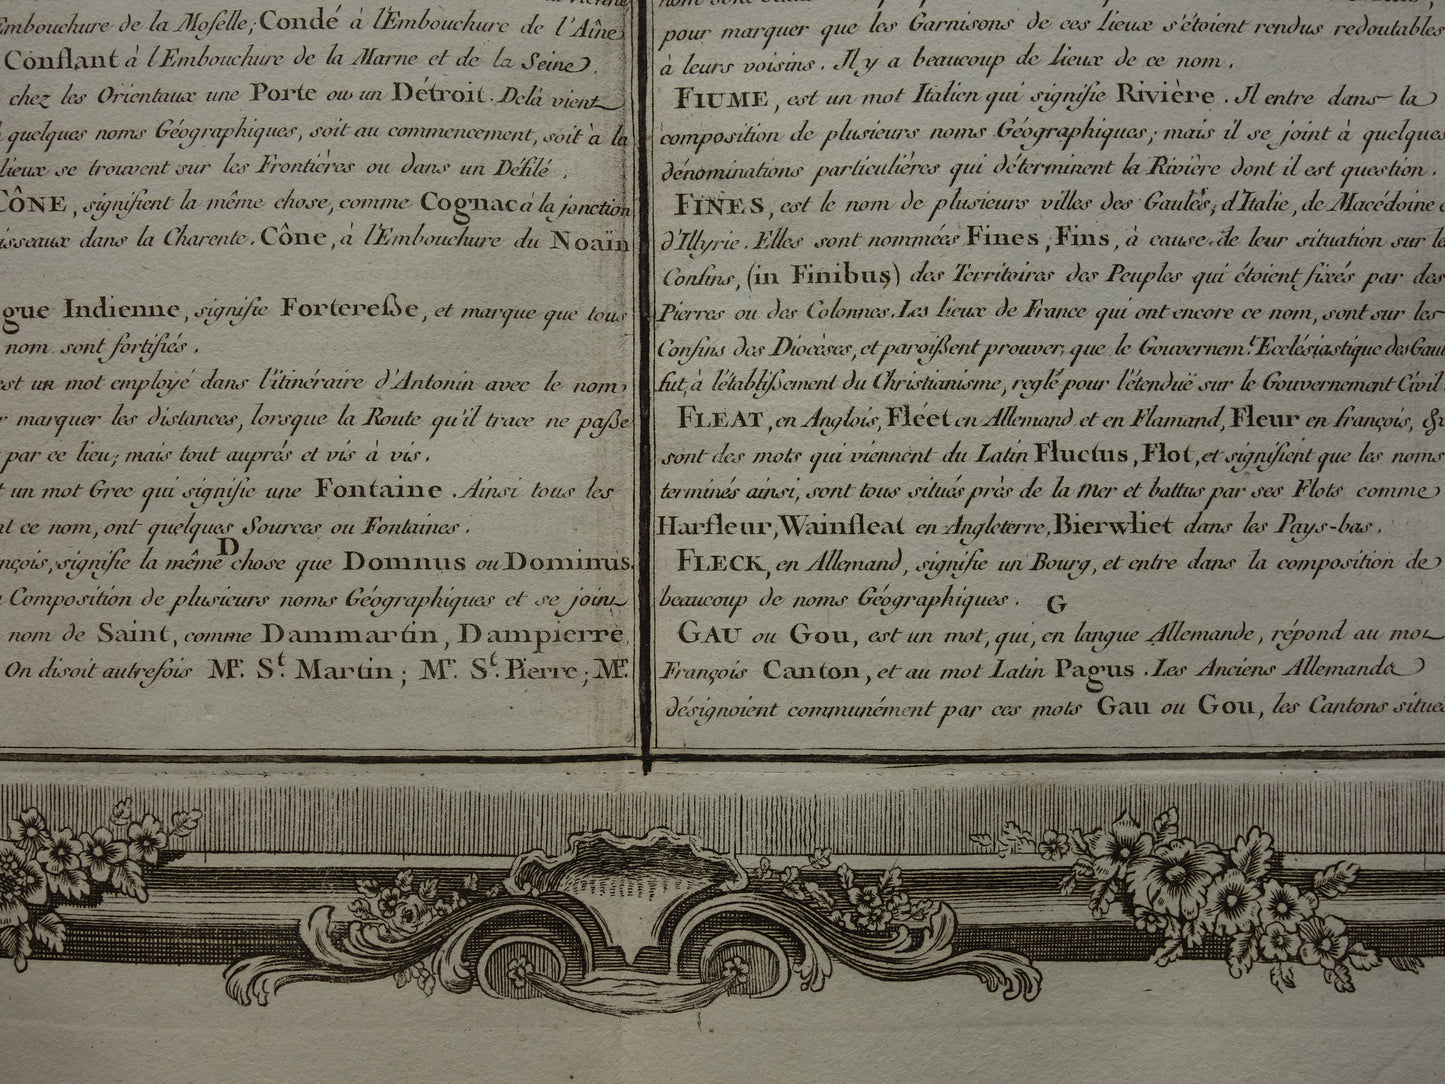 Embouchure de la Moselle; Condé à l'Embouchure de l'Aîne
Conflant à l'Embouchure de la Marne et de la Seine.
chez les Orientaux une Porte ou un Détroit. Delà vient
quelques noms Géographiques, soit au commencement, soit à la
lieux se trouvent sur les Frontières ou dans un Défilé.
CÔNE, signifient la même chose, comme Cognac à la jonction
isseaux dans la Charente. Cône, à l'Embouchure du Noaïn
gue Indienne, signifie Fortereße, et marque que tous
nom sont fortifiés.
est un mot employé dans l'itinéraire d'Antonin avec le nom
r marquer les distances, lorsque la Route qu'il trace ne paße
par ce lieu; mais tout auprés et vis à vis.
t un mot Grec qui signifie une Fontaine. Ainsi tous les
nt ce nom, ont quelques Sources ou Fontaines.
D
nçois, signifie la même chose que Domnus ou Dominus.
Composition de plusieurs noms Géographiques et se joint
nom de Saint, comme Dammartin, Dampierre,
On disoit autrefois Mr. St. Martin; Mr. St. Pierre; Mr.
pour marquer que les Garnisons de ces lieux s'étoient rendus redoutables
à leurs voisins. Il y a beaucoup de lieux de ce nom.
FIUME, est un mot Italien qui signifie Rivière. Il entre dans la
composition de plusieurs noms Géographiques; mais il se joint à quelques
dénominations particulières qui déterminent la Rivière dont il est question.
FINES, est le nom de plusieurs villes des Gaules, d'Italie, de Macédoine e
d'Illyrie. Elles sont nommées Fines, Fins, à cause de leur situation sur le
Confins, (in Finibus) des Territoires des Peuples qui étoient fixés par des
Pierres ou des Colonnes. Les lieux de France qui ont encore ce nom, sont sur les
Confins des Diocèses, et paroißent prouver que le Gouvernemt. Ecclésiastique des Gaul
fut, à l'établißement du Christianisme, reglé pour l'étenduë sur le Gouvernement Civil.
FLEAT, en Anglois, Fléet en Allemand et en Flamand, Fleur en françois, &c
sont des mots qui viennent du Latin Fluctus, Flot, et signifient que les noms
terminés ainsi, sont tous situés près de la Mer et battus par ses Flots comme
Harfleur, Wainfleat en Angleterre, Bierwliet dans les Pays-bas.
FLECK, en Allemand, signifie un Bourg, et entre dans la composition de
beaucoup de noms Géographiques.
G
GAU ou GOU, est un mot, qui, en langue Allemande, répond au mot
François Canton, et au mot Latin Pagus. Les Anciens Allemands
désignoient communément par ces mots Gau ou Gou, les Cantons situés